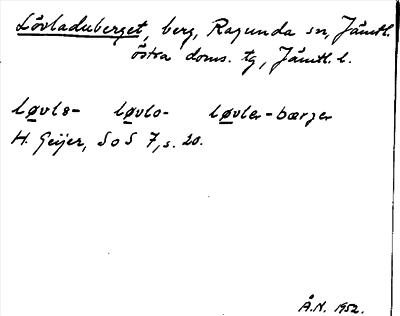 Lövladuberget, berg, Ragunda sn, Jämtl.
östra doms. tg, Jämtl. l.
løvlo- løvlo- løvler-bærjer
H. Geijer, SoS 7, s. 20.
Å.N. 1952.